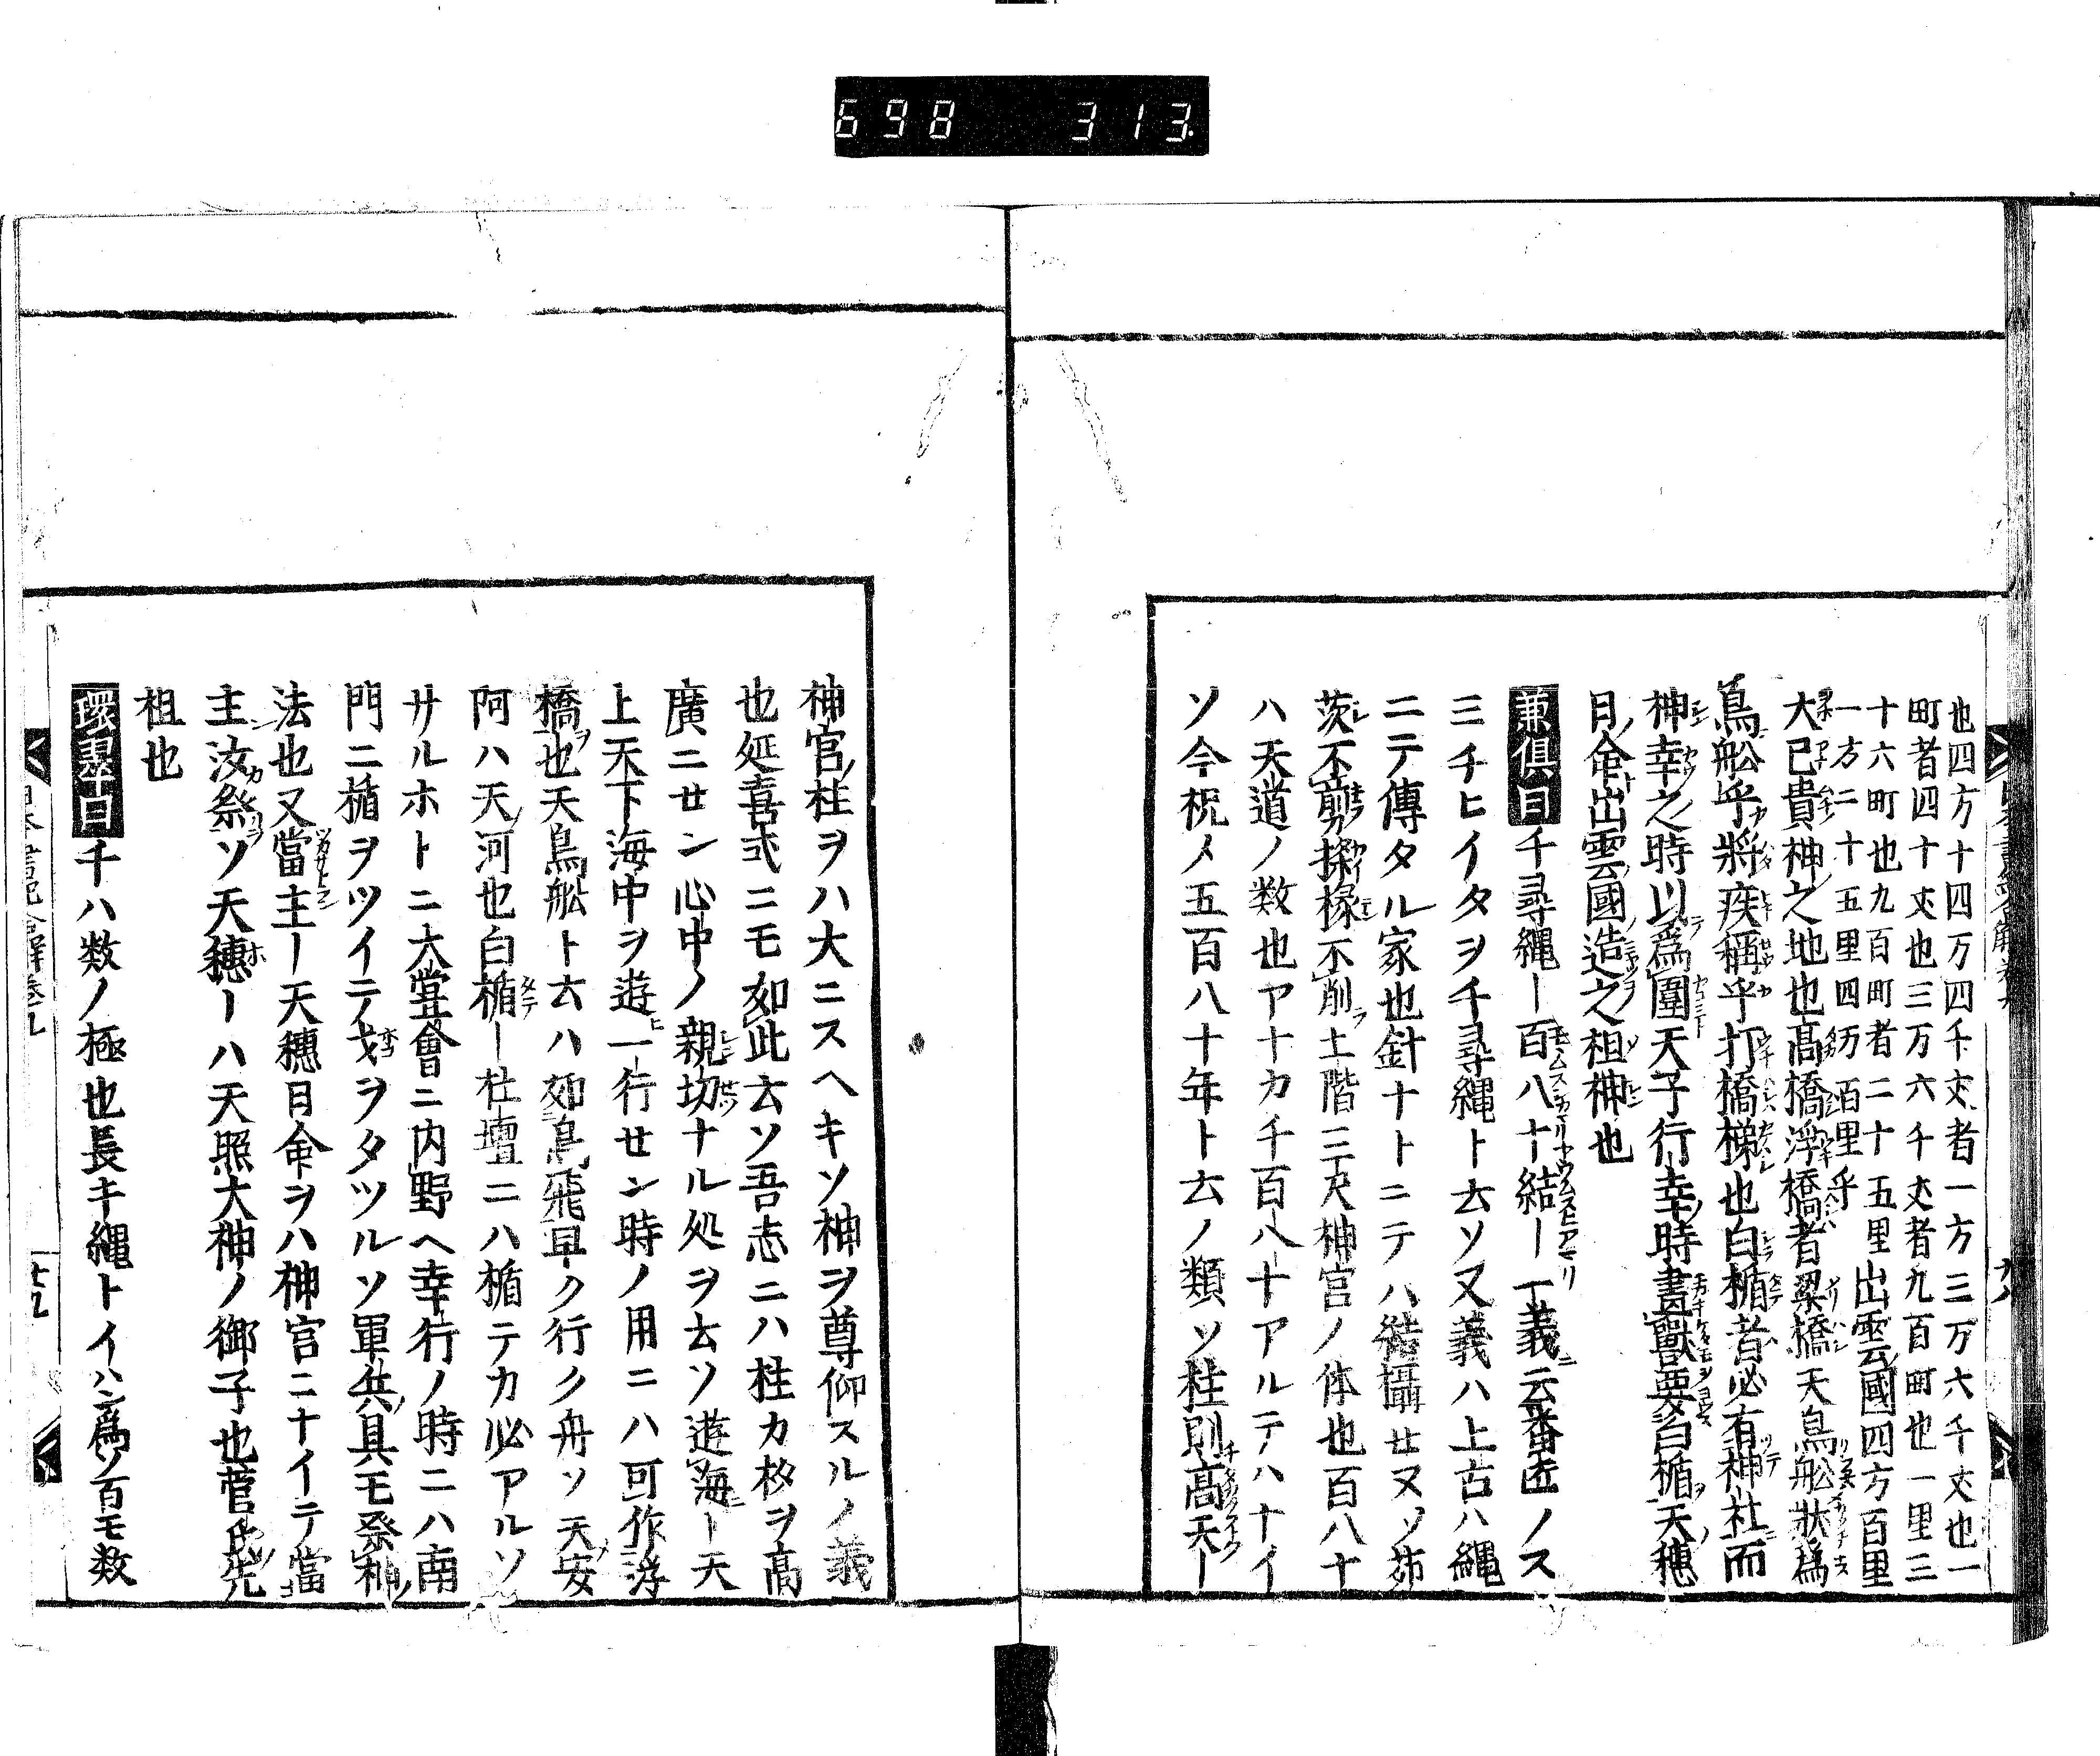 698 313.
也四方十四万四千丈者一方三万六千丈也一
町者四十丈也三万六千丈者九百町也一里三
十六町也九百町者二十五里出雲國四方百里
一方二十五里四方百里乎
大己貴神之地也髙橋浮橋者梁橋天鳥舩狀爲
鳥舩乎將疾稱乎打橋梯也白楯者必有神社而
神幸之時以爲圍天子行幸時畫獸要白楯天穗
日命出雲國造之祖神也
兼倶曰千尋縄ー百八十結ー一義云番匠ノス
ミチヒイタヲ千尋縄ト云ソ又義ハ上古ハ縄
ニテ傳タル家也針ナトニテハ結攝せヌソ茆
茨不剪採椽不削土階三尺神宮ノ体也百八十
ハ天道ノ数也アナカチ百八十アルテハナイ
ソ今祝メ五百八十年ト云ノ類ソ柱則髙天ー
神宮ノ柱ヲハ大ニスヘキソ神ヲ尊仰スルノ義
也延喜式ニモ如此云ソ吾志ニハ柱カ格ヲ髙
廣ニセン心中ノ親切ナル処ヲ云ソ遊海ー天
上天下海中ヲ遊ー行せン時ノ用ニハ可作浮
橋也天鳥舩ト云ハ如鳥飛早ク行ク舟ソ天安
阿ハ天ノ河也白楯ー社壇ニハ楯テカ必アルソ
サルホトニ大嘗會ニ内野ヘ幸行ノ時ニハ南
門ニ楯ヲツイテ戈ヲタツルソ軍兵ノ具モ祭神ノ
法也又當主ー天穗日命ヲハ神宮ニナイテ當
主汝祭ソ天穗ーハ天照大神ノ御子也菅氏先
祖也
環翠曰千ハ数ノ極也長キ縄トイハン爲ソ百モ数
日本書紀合解巻九
廿九